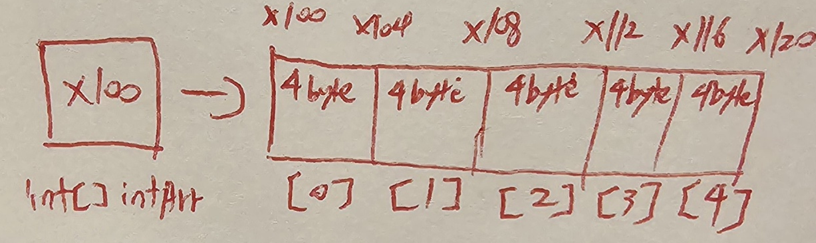 x100 x104 x108 x112 x116 x120
x100 4byte 4byte 4byte 4byte 4byte
int[] intArr [0] [1] [2] [3] [4]